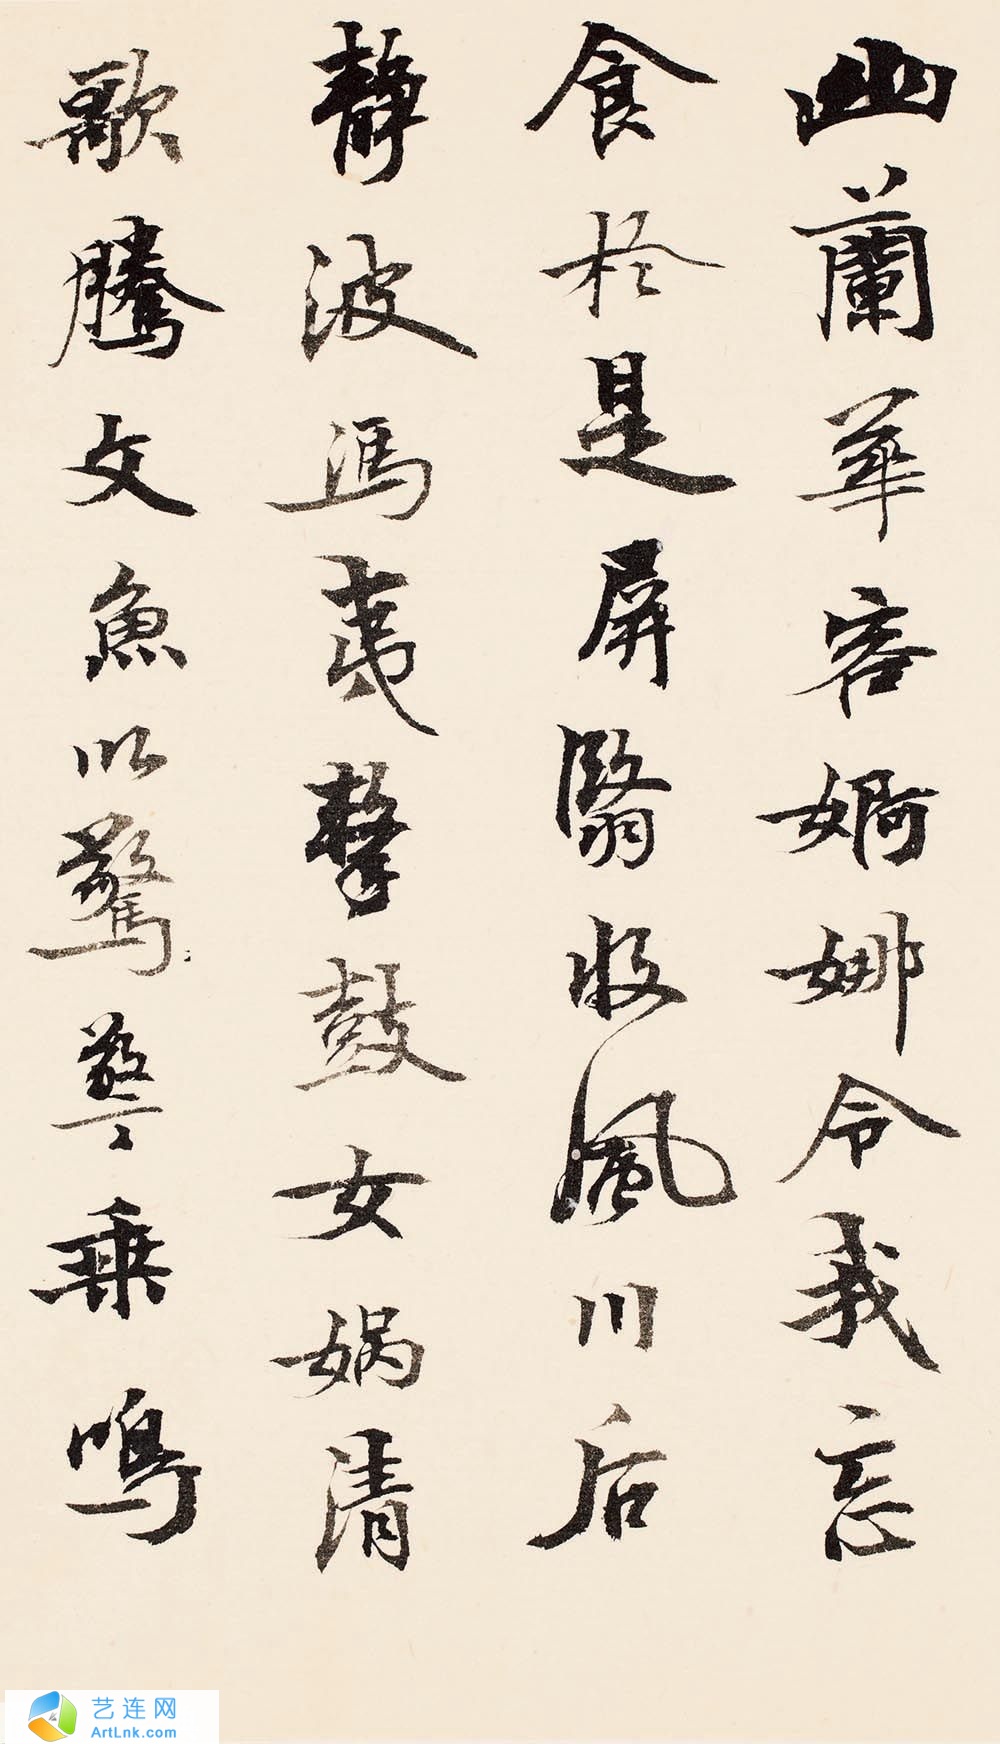 幽蘭華容婀娜令我忘
食於是屏翳收風川后
靜波馮夷擊鼓女媧清
歌騰文魚以驚警乘鳴
艺连网
ArtLnk.com